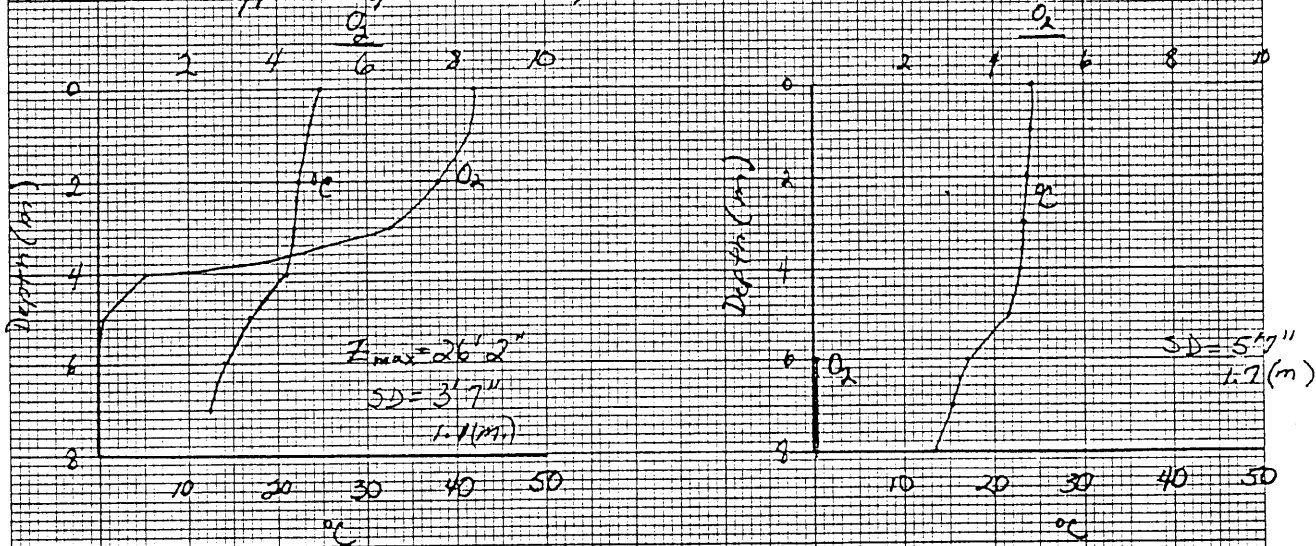 O2
2 4 6 8 10
0
2
4
6
8
Depth (m)
°C
O2
Zmax = 26' 2"
SD = 3' 7"
1.1 (m.)
10 20 30 40 50
°C
O2
2 4 6 8 10
0
2
4
6
8
Depth (m)
°C
O2
SD = 5' 7"
1.7 (m)
10 20 30 40 50
°C